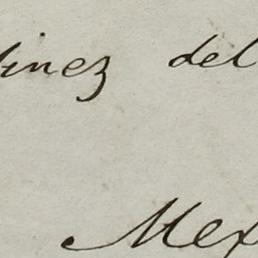 tinez del
Mex